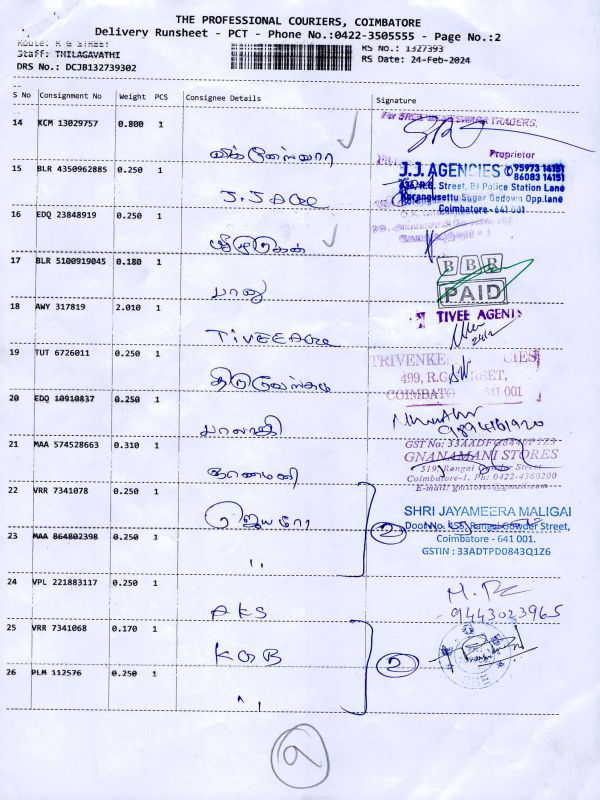 THE PROFESSIONAL COURIERS, COIMBATORE
Delivery Runsheet - PCT - Phone No.:0422-3505555 - Page No.:2
Route: R G STREET
Staff: THILAGAVATHI
RS No.: 1327393
DRS No.: DCJB132739302
RS Date: 24-Feb-2024
S No Consignment No Weight PCS Consignee Details Signature
14 KCM 13029757 0.800 1
விக்னேஸ்வரா
Proprietor
15 BLR 4350962885 0.250 1
J.J Ace
J.J. AGENCIES
75973 14151
86083 14151
R.G. Street, B1 Police Station Lane
Karangusettu Sugar Godown Opp.lane
Coimbatore - 641 001
16 EDQ 23848919 0.250 1
17 BLR 5100919045 0.180 1
பானு
BBR
PAID
18 AWY 317819 2.010 1
TIVEE Ace
TIVEE AGENT
24/2
19 TUT 6726011 0.250 1
திருவேங்கடம்
TRIVENKE CIES
499, R.G. STREET,
COIMBATO 641 001
20 EDQ 10910837 0.250 1
பாலாஜி
9894161920
21 MAA 574528663 0.310 1
ஞானமணி
GNANAMANI STORES
519, Rangai Gowder Street
Coimbatore-1. Ph: 0422-4360200
22 VRR 7341078 0.250 1
ஜெயமீரா
2
SHRI JAYAMEERA MALIGAI
Door No. 455, Rangai Gowder Street,
Coimbatore - 641 001.
GSTIN : 33ADTPD0843Q1Z6
23 MAA 864802398 0.250 1
"
24 VPL 221883117 0.250 1
AKS
9443023965
25 VRR 7341068 0.170 1
KGB
2
26 PLM 112576 0.250 1
"
9